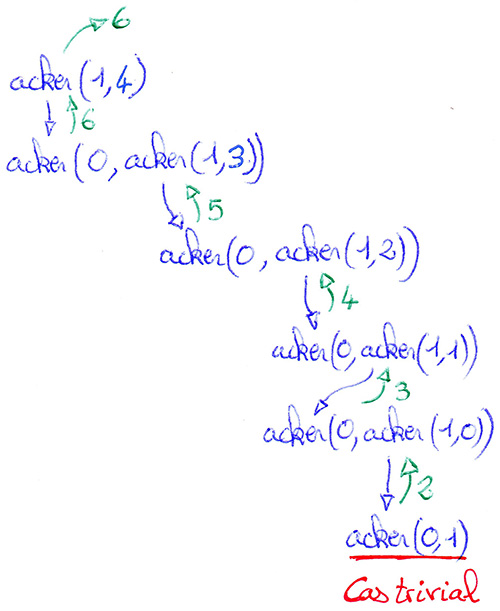 6
acker(1,4)
6
acker(0, acker(1,3))
5
acker(0, acker(1,2))
4
acker(0, acker(1,1))
3
acker(0, acker(1,0))
2
acker(0,1)
Cas trivial